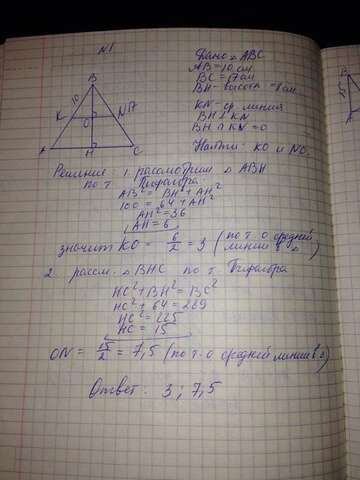 N1
Дано △ ABC
AB = 10 см
BC = 17 см
BH - высота = 8 см
KN - ср линия
BH ⊥ KN
BH ∩ KN = O
Найти: KO и NO.
B
10
K
O
N
17
A
H
C
Решение 1. рассмотрим △ ABH
по т. Пифагора
AB² = BH² + AH²
100 = 64 + AH²
AH² = 36
AH = 6
значит KO = 6/2 = 3 (по т. о средней
линии в △)
2. рассм. △ BHC по т. Пифагора
HC² + BH² = BC²
HC² + 64 = 289
HC² = 225
HC = 15
ON = 15/2 = 7,5 (по т-о средней линии в △)
Ответ: 3; 7,5
B
15
A